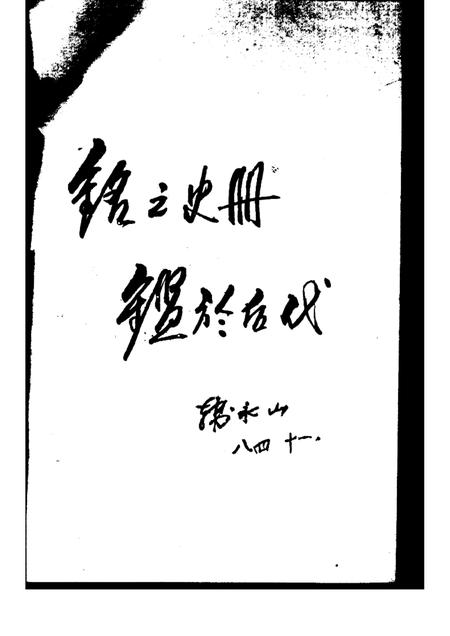 銘之史冊
鑑於后代
永山
八四 十一.